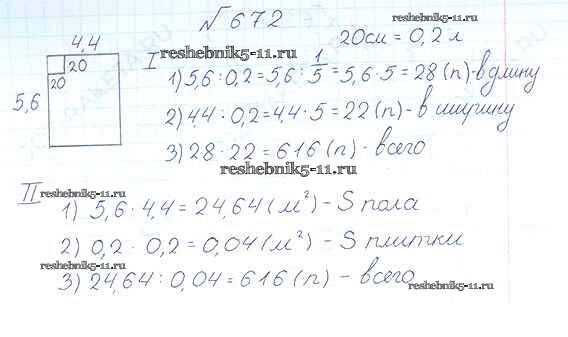 № 672
reshebnik5-11.ru
20см = 0,2 л
4,4
20
20
5,6
reshebnik5-11.ru
I
1) 5,6 : 0,2 = 5,6 : 1/5 = 5,6 · 5 = 28 (п) - в длину
2) 4,4 : 0,2 = 4,4 · 5 = 22 (п) - в ширину
3) 28 · 22 = 616 (п) - всего
reshebnik5-11.ru
II reshebnik5-11.ru
1) 5,6 · 4,4 = 24,64 (м²) - S пола
2) 0,2 · 0,2 = 0,04 (м²) - S плитки
reshebnik5-11.ru
3) 24,64 : 0,04 = 616 (п) - всего
reshebnik5-11.ru